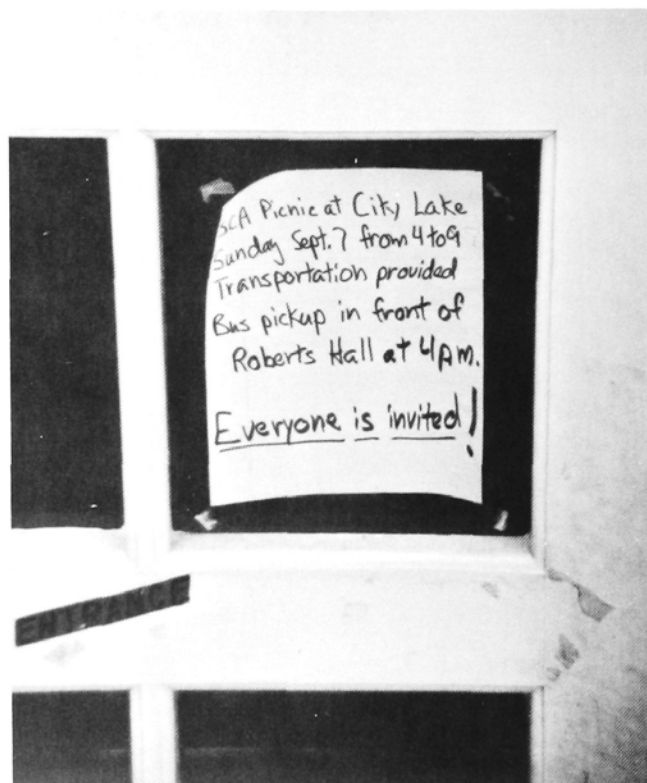 SCA Picnic at City Lake
Sunday Sept. 7 from 4 to 9
Transportation provided
Bus pickup in front of
Roberts Hall at 4pm.
Everyone is invited!
ENTRANCE